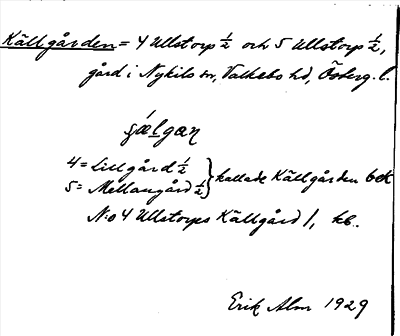 Källgården = 4 Ullstorp ½ och 5 Ullstorp ½,
gård i Nykils sn, Valkebo hd, Österg. l.
4 = Lillgård ½
5 = Mellangård ½ } kallade Källgården
N:o 4 Ullstorps Källgård /, kb.
Erik Alm 1929